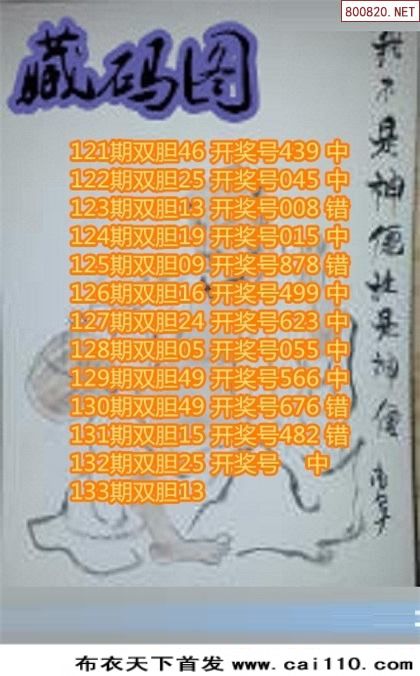 800820.NET
藏码图
121期双胆46 开奖号439 中
122期双胆25 开奖号045 中
123期双胆13 开奖号008 错
124期双胆19 开奖号015 中
125期双胆09 开奖号878 错
126期双胆16 开奖号499 中
127期双胆24 开奖号623 中
128期双胆05 开奖号055 中
129期双胆49 开奖号566 中
130期双胆49 开奖号676 错
131期双胆15 开奖号482 错
132期双胆25 开奖号 中
133期双胆13
我不是神便是神
布衣天下首发 www.cai110.com